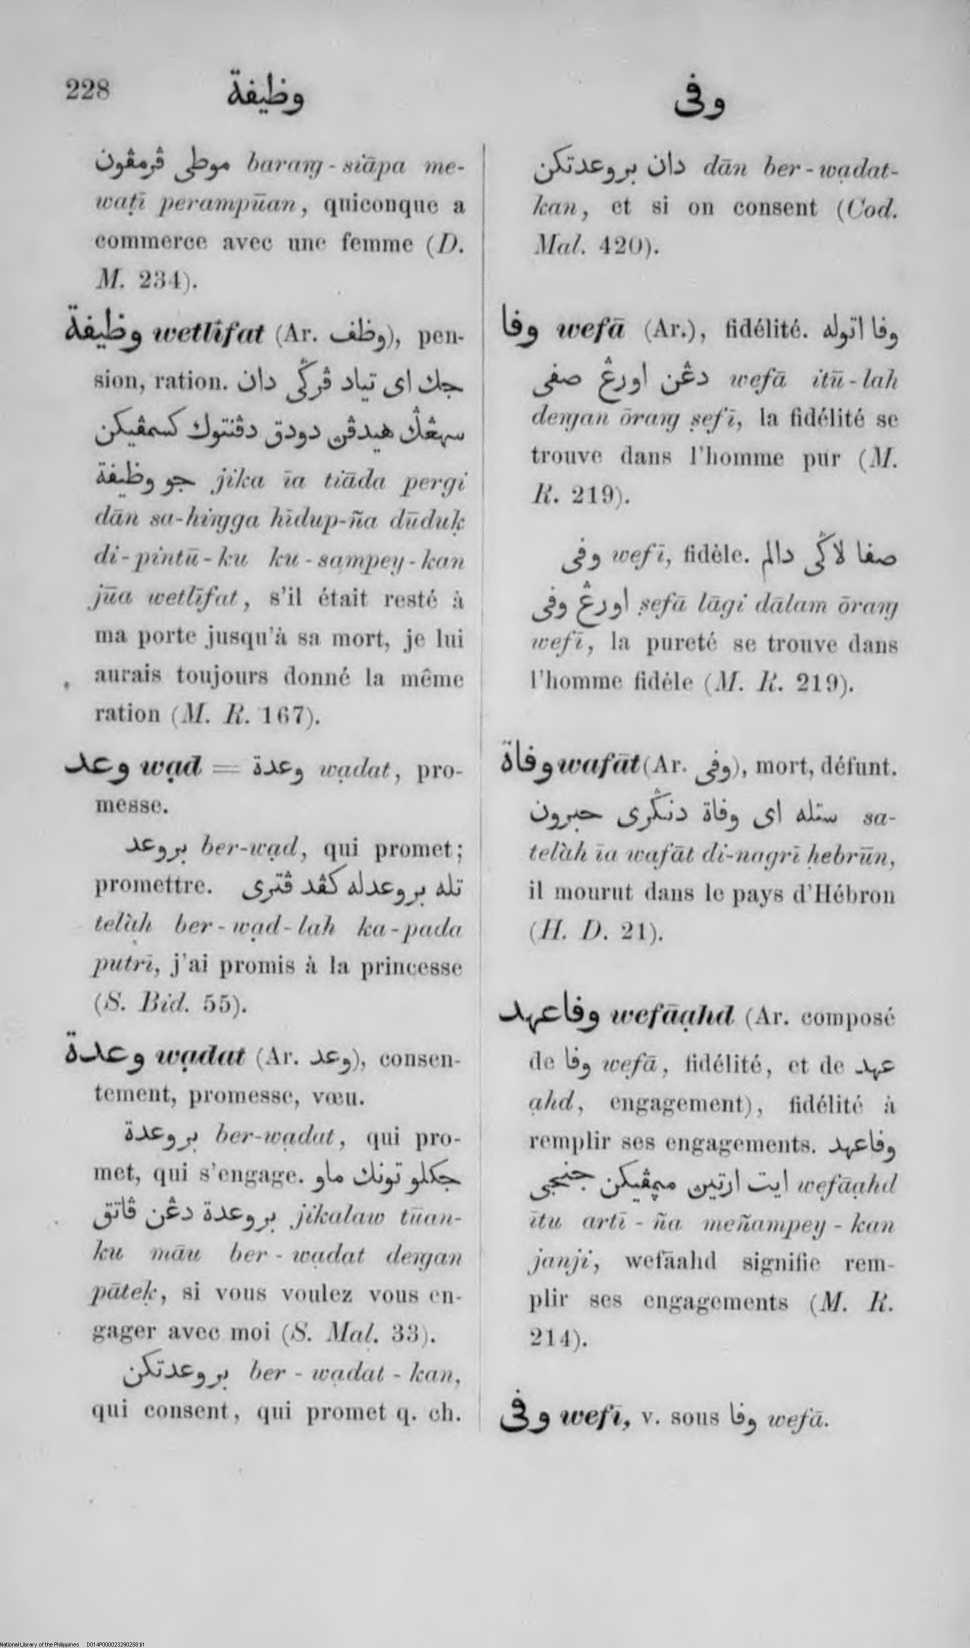 228 وظيفة وفى
موطي ڤرمڤون barang-siāpa me-
waṭī perampūan, quiconque a
commerce avec une femme (D.
M. 234).
وظيفة wetlīfat (Ar. وظف), pen-
sion, ration. جك اي تياد ڤرݢي دان
سهڠݢ هيدڤن دودق دڤنتوك كسمڤيكن
جو وظيفة jika īa tiāda pergi
dān sa-hingga hidup-ña dūduḳ
di-pintū-ku ku-sampey-kan
jūa wetlīfat, s'il était resté à
ma porte jusqu'à sa mort, je lui
aurais toujours donné la même
ration (M. R. 167).
وعد wạd = وعدة wạdat, pro-
messe.
بروعد ber-wạd, qui promet;
promettre. تله بروعدله كڤد ڤتري
telàh ber-wạd-lah ka-pada
putrī, j'ai promis à la princesse
(S. Bid. 55).
وعدة wạdat (Ar. وعد), consen-
tement, promesse, vœu.
بروعدة ber-wạdat, qui pro-
met, qui s'engage. جكلو تونك ماو
بروعدة دڠن ڤاتق jikalaw tūan-
ku māu ber-wạdat dengan
pāteḳ, si vous voulez vous en-
gager avec moi (S. Mal. 33).
بروعدتكن ber-wạdat-kan,
qui consent, qui promet q. ch.
دان بروعدتكن dān ber-wạdat-
kan, et si on consent (Cod.
Mal. 420).
وفا wefā (Ar.), fidélité. وفا اتوله
دڠن اورڠ صفي wefā itū-lah
dengan ōrang ṣefī, la fidélité se
trouve dans l'homme pur (M.
R. 219).
وفي wefī, fidèle. صفا لاݢي دالم
اورڠ وفي ṣefā lāgi dālam ōrang
wefī, la pureté se trouve dans
l'homme fidèle (M. R. 219).
وفاة wafāt (Ar. وفي), mort, défunt.
ستله اي وفاة دنݢري حبرون sa-
telàh īa wafāt di-nagrī ḥebrūn,
il mourut dans le pays d'Hébron
(H. D. 21).
وفاعهد wefāạhd (Ar. composé
de وفا wefā, fidélité, et de عهد
ạhd, engagement), fidélité à
remplir ses engagements. وفاعهد
ايت ارتين مڽمڤيكن جنجي wefāạhd
ītu artī-ña meñampey-kan
janji, wefāahd signifie rem-
plir ses engagements (M. R.
214).
وفى wefī, v. sous وفا wefā.
National Library of the Philippines